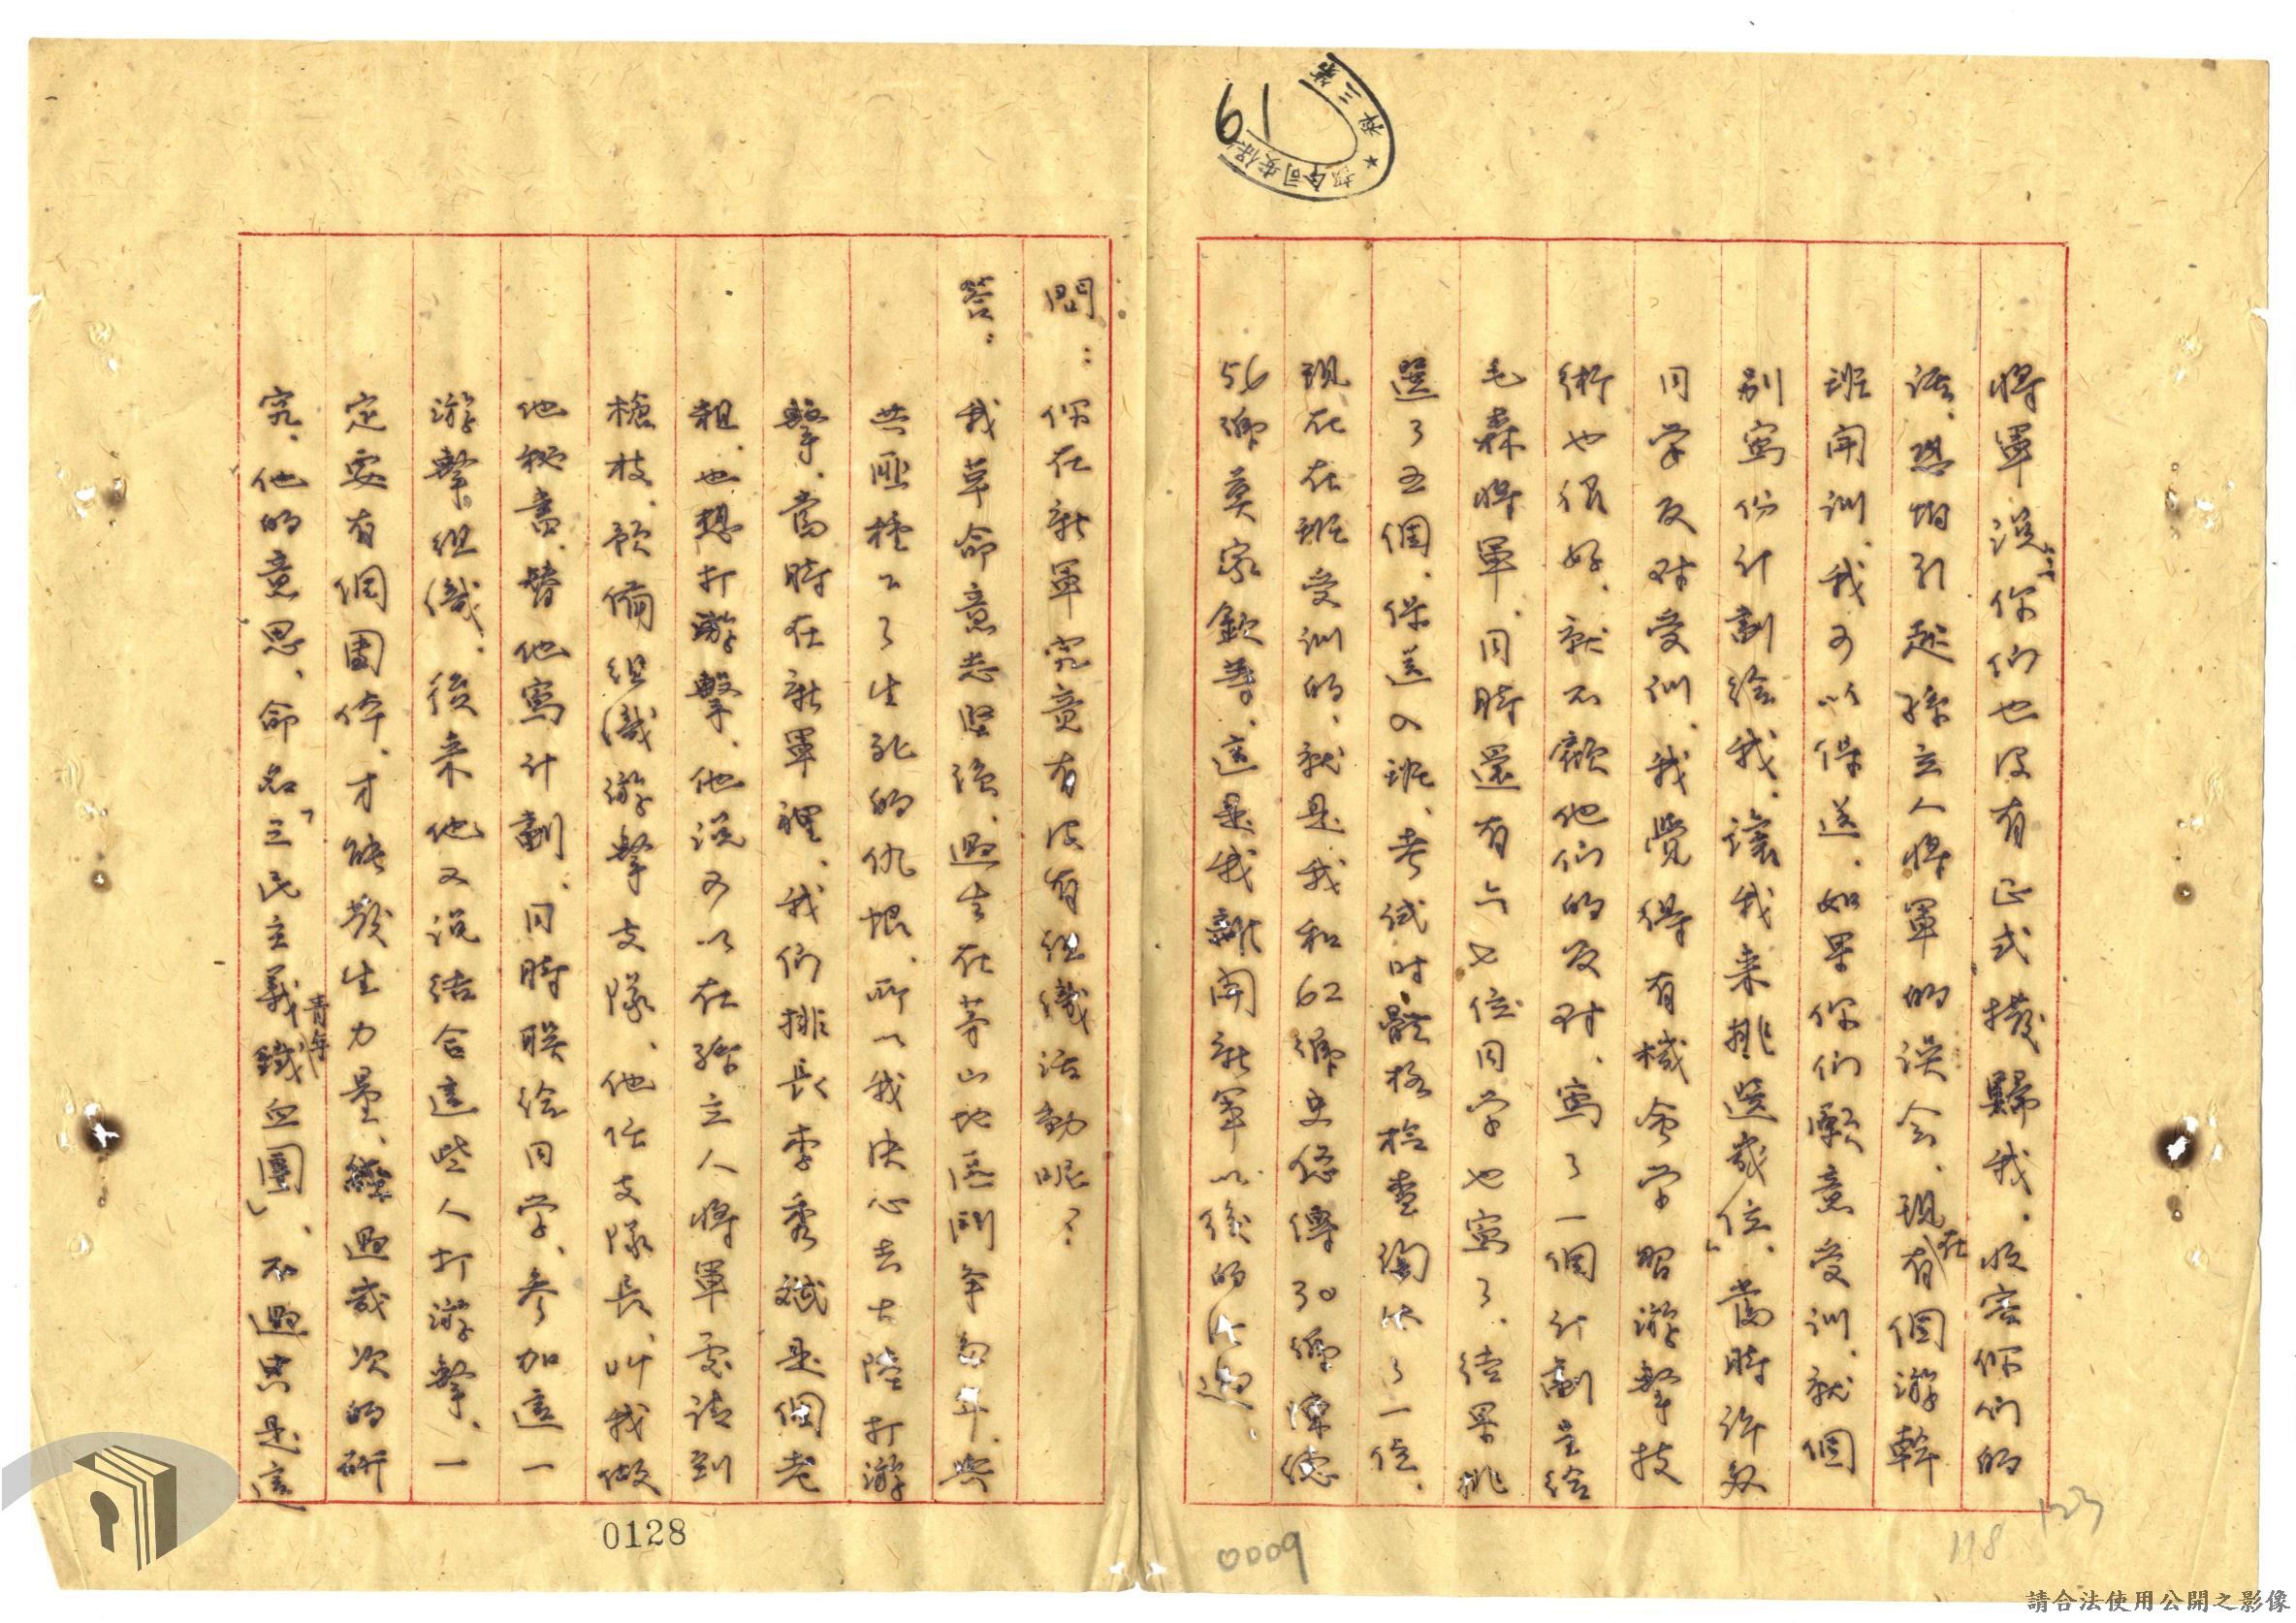 61
第三科 ★ 保安司令部
將軍說:「你們也沒有正式撥歸我.收容你們的
話.恐怕引起孫立人將軍的誤会.現在有個游幹
班開訓.我可以保送.如果你們願意受訓.就個
別寫份計劃給我.讓我来挑選幾位」.當時許多
同学反对受訓.我覺得有機会学習游擊技
術也很好.就不顧他們的反对.寫了一個計劃呈給
毛森將軍.同時還有六七位同学也寫了.結果挑
選了五個.保送入班.考試时體格檢查淘汰了一位.
現在在班受訓的.就是我和62鄉史修傳30鄉陳德
56鄉莫家欽等.這是我離開新軍以後的经過.
問:你在新軍究竟有沒有組織活動呢?
答:我革命意志坚強.過去在茅山地區鬥争多年.與
共匪種下了生死的仇恨.所以我决心去大陸打游
擊.當時在新軍裡.我們排長李秀斌是個老
粗.也想打游擊.他說可以在孫立人將軍處請到
槍枝.預備組識游擊支隊.他任支隊長.叫我做
他秘書.替他寫計劃.同時联给同学.参加這一
游擊組識.後来他又說结合這些人打游擊.一
定要有個團体.才能發生力量.經過幾次的研
究.他的意思.命名「三民主義青年鐵血團」.不過只是這
0128
0009
118
123
請合法使用公開之影像